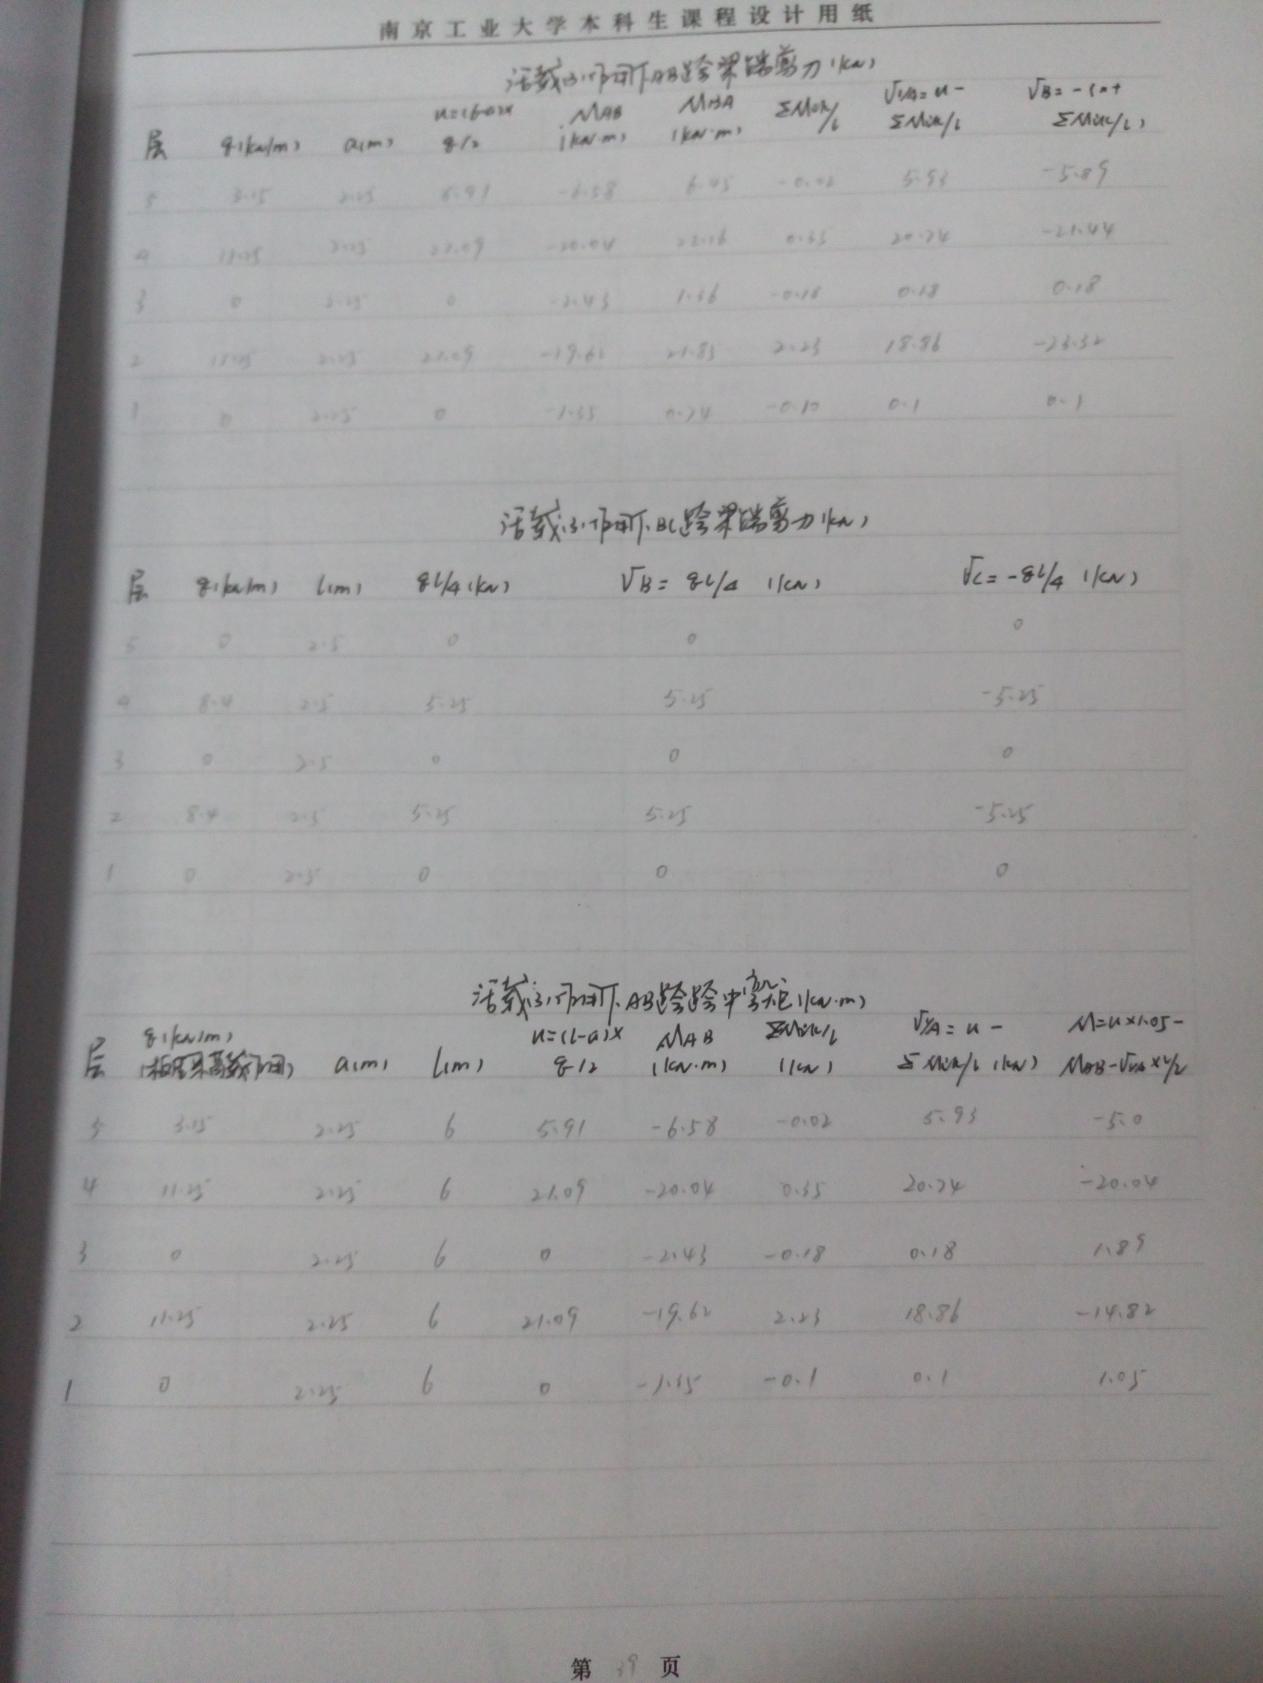 南京工业大学本科生课程设计用纸
活载(3)作用下AB跨梁端剪力(kN)
层 q(kN/m) a(m) u=(l-a)×q/2 MAB(kN·m) MBA(kN·m) ΣMik/l V1/A=u-ΣMik/l VB=-(u+ΣMik/l)
5 3.15 2.25 5.91 -6.58 6.45 -0.02 5.93 -5.89
4 11.25 2.25 21.09 -20.04 22.16 0.35 20.74 -21.44
3 0 2.25 0 -2.43 1.36 -0.18 0.18 0.18
2 11.25 2.25 21.09 -19.62 21.83 2.23 18.86 -23.32
1 0 2.25 0 -1.35 0.74 -0.10 0.1 0.1
活载(3)作用下BC跨梁端剪力(kN)
层 q(kN/m) l(m) ql/4(kN) VB=ql/4 (kN) VC=-ql/4 (kN)
5 0 2.5 0 0 0
4 8.4 2.5 5.25 5.25 -5.25
3 0 2.5 0 0 0
2 8.4 2.5 5.25 5.25 -5.25
1 0 2.5 0 0 0
活载(3)作用下AB跨跨中弯矩(kN·m)
层 q(kN/m) a(m) l(m) u=(l-a)×q/2 MAB(kN·m) ΣMik/l(kN) V1/A=u-ΣMik/l(kN) M=u×1.05-MAB-V1/A×l/2
5 3.15 2.25 6 5.91 -6.58 -0.02 5.93 -5.0
4 11.25 2.25 6 21.09 -20.04 0.35 20.74 -20.04
3 0 2.25 6 0 -2.43 -0.18 0.18 1.89
2 11.25 2.25 6 21.09 -19.62 2.23 18.86 -14.82
1 0 2.25 6 0 -1.35 -0.1 0.1 1.05
第 39 页